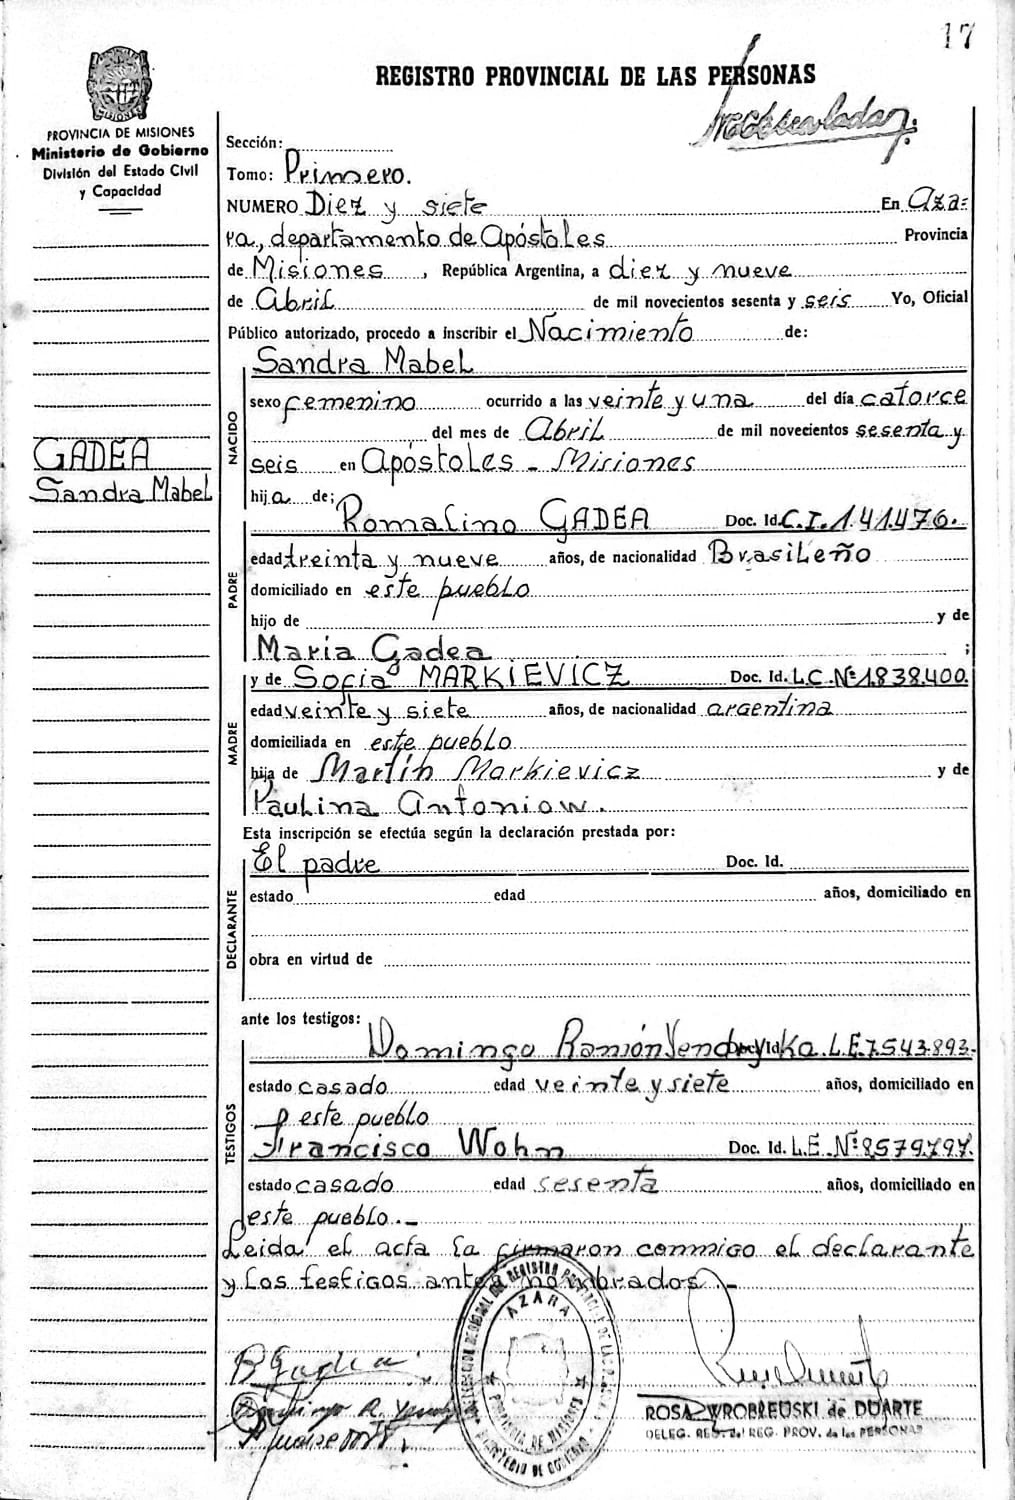 17
REGISTRO PROVINCIAL DE LAS PERSONAS
PROVINCIA DE MISIONES
Ministerio de Gobierno
División del Estado Civil
y Capacidad
Sección:
Tomo: Primero.
NUMERO Diez y siete En Aza=
ra, departamento de Apóstoles Provincia
de Misiones, República Argentina, a diez y nueve
de Abril de mil novecientos sesenta y seis Yo, Oficial
Público autorizado, procedo a inscribir el Nacimiento de:
NACIDO
Sandra Mabel
sexo femenino ocurrido a las veinte y una del día catorce
del mes de Abril de mil novecientos sesenta y
GADEA
Sandra Mabel
seis en Apóstoles - Misiones
hija de;
PADRE
Romalino GADEA Doc. Id. C.I. 141.476.
edad treinta y nueve años, de nacionalidad Brasileño
domiciliado en este pueblo
hijo de y de
Maria Gadea ;
MADRE
y de Sofia MARKIEVICZ Doc. Id. L.C. Nº 1.838.400.
edad veinte y siete años, de nacionalidad argentina
domiciliada en este pueblo
hija de Martín Markievicz y de
Paulina Antoniow.
Esta inscripción se efectúa según la declaración prestada por:
DECLARANTE
El padre Doc. Id.
estado edad años, domiciliado en
obra en virtud de
ante los testigos:
TESTIGOS
Domingo Ramón L.E. 7.543.893.
estado casado edad veinte y siete años, domiciliado en
este pueblo
Francisco Wohn Doc. Id. L.E. Nº 8.579.797.
estado casado edad sesenta años, domiciliado en
este pueblo.-
Leida el acta la firmaron conmigo el declarante
y los testigos antes nombrados.-
AZARA
PROVINCIA DE MISIONES
MINISTERIO DE GOBIERNO
ROSA WROBLEUSKI de DUARTE
DELEG. REG. del REG. PROV. de las PERSONAS